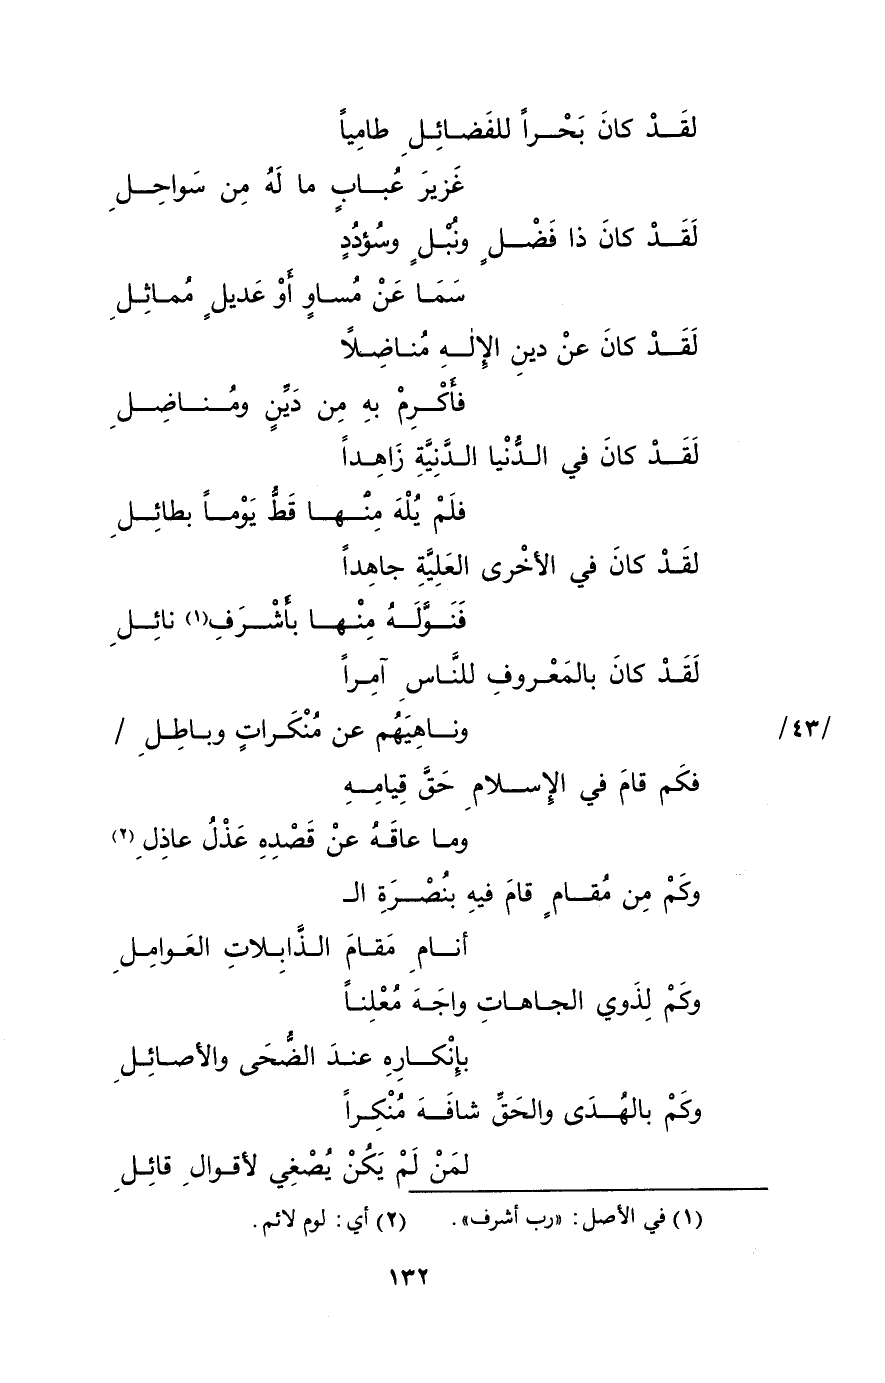 لقَدْ كانَ بَحْراً للفَضائِلِ طامِياً
غَزيرَ عُبابٍ ما لَهُ مِن سَواحِلِ
لَقَدْ كانَ ذا فَضْلٍ ونُبْلٍ وسُؤدُدٍ
سَمَا عَنْ مُساوٍ أَوْ عَديلٍ مُماثِلِ
لَقَدْ كانَ عنْ دينِ الإِلٰهِ مُناضِلاً
فأَكْرِمْ بهِ مِن دَيِّنٍ ومُناضِلِ
لَقَدْ كانَ في الدُّنْيا الدَّنِيَّةِ زَاهِداً
فلَمْ يُلْهَ مِنْها قَطُّ يَوْماً بطائِلِ
لقَدْ كانَ في الأخْرى العَلِيَّةِ جاهِداً
فَنَوَّلَهُ مِنْها بأَشْرَفِ(١) نائِلِ
لَقَدْ كانَ بالمَعْروفِ للنَّاسِ آمِراً
/٤٣/ وناهِيَهُم عن مُنْكَراتٍ وباطِلِ /
فكَم قامَ في الإِسلامِ حَقَّ قِيامِهِ
وما عاقَهُ عنْ قَصْدِهِ عَذْلُ عاذِلِ(٢)
وكَمْ مِن مُقامٍ قامَ فيهِ بنُصْرَةِ الـ
أنامِ مَقامَ الذَّابِلاتِ العَوامِلِ
وكَمْ لِذَوي الجاهاتِ واجَهَ مُعْلِناً
بإِنْكارِهِ عندَ الضُّحَى والأصائِلِ
وكَمْ بالهُدَى والحَقِّ شافَهَ مُنْكِراً
لمَنْ لَمْ يَكُنْ يُصْغِي لأقوالِ قائِلِ
(١) في الأصل: «رب أشرف». (٢) أي: لوم لائم.
١٣٢